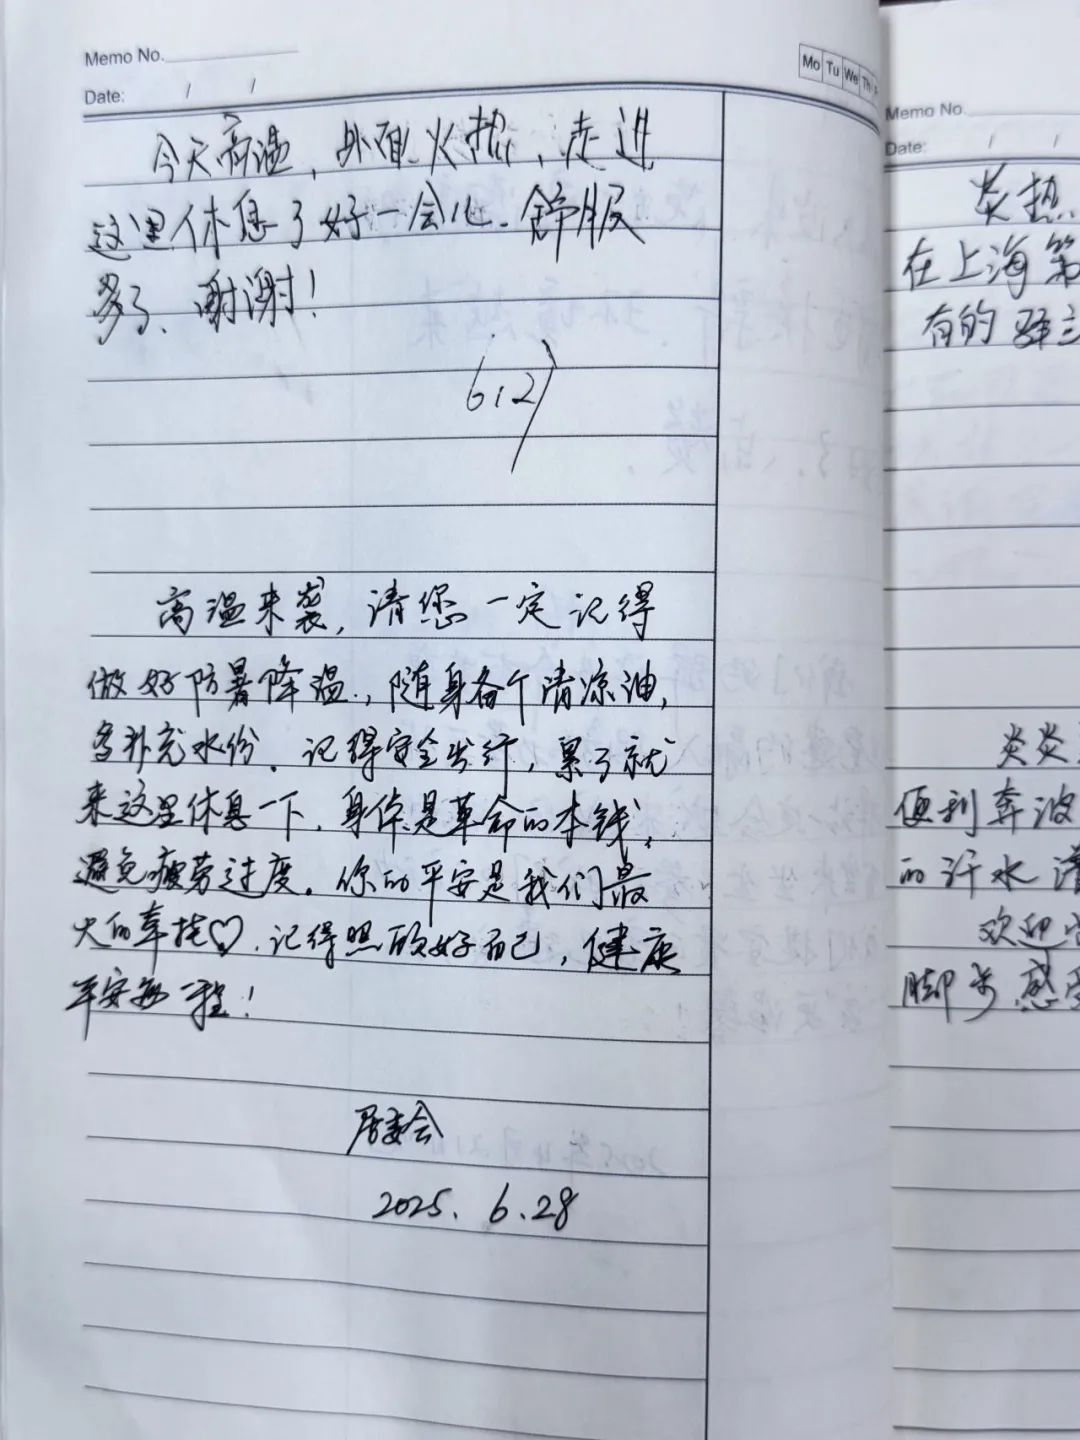 Memo No.
Date: / /
Mo Tu We Th
今天高温，外面火热，走进
这里休息了好一会儿、舒服
多了、谢谢！
6.27
高温来袭，请您一定记得
做好防暑降温，随身备个清凉油，
多补充水份。记得安全出行，累了就
来这里休息一下，身体是革命的本钱，
避免疲劳过度。你的平安是我们最
大的牵挂♡。记得照顾好自己，健康
平安每一程！
居委会
2025. 6.28
Memo No.
Date: / /
炎热
在上海第
有的驿
炎炎
便利奔波
的汗水
欢迎
脚步感受